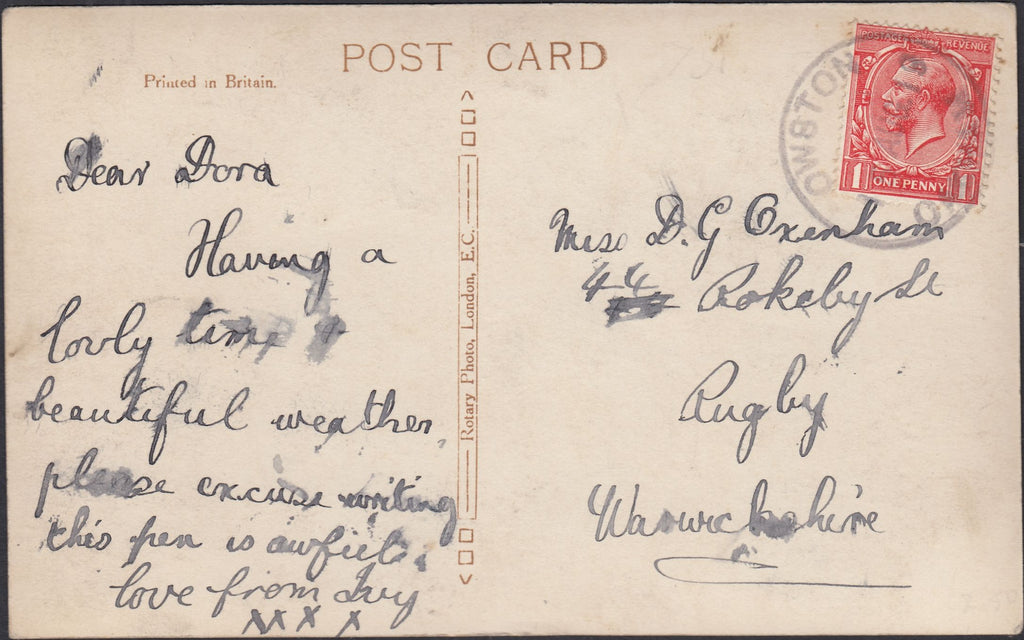 POST CARD
Printed in Britain.
POSTAGE REVENUE
1 ONE PENNY 1
OWSTON
Dear Dora
Having a
lovly time &
beautiful weather,
please excuse writing
this pen is awful.
love from Ivy
xx x x
Rotary Photo, London, E.C.
Miss D. G Oxenham
44 Rokeby St
Rugby
Warwickshire